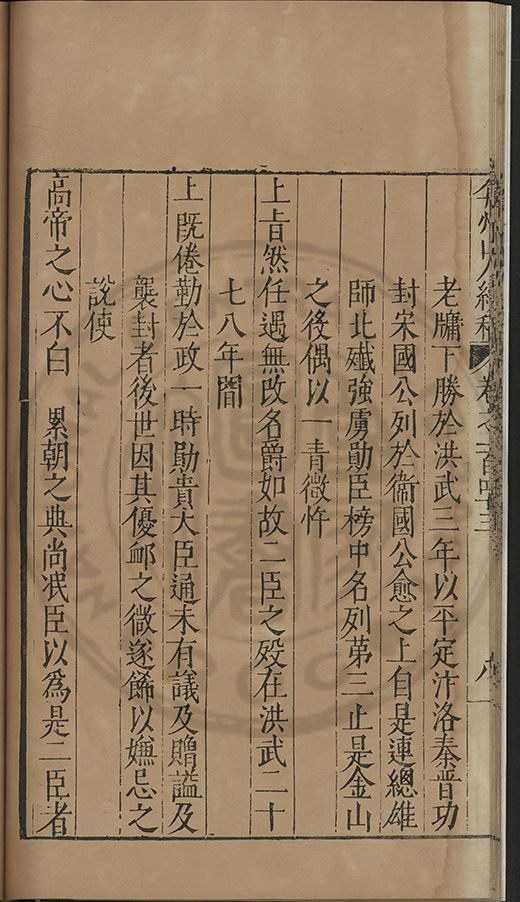 弇州山人續稿 卷之一百四十三 八
老牖下勝於洪武三年以平定汴洛秦晉功
封宋國公列於衞國公愈之上自是連總雄
師北殲強虜勛臣榜中名列第三止是金山
之後偶以一青微忤
上旨然任遇無改名爵如故二臣之殁在洪武二十
七八年間
上既倦勤於政一時勛貴大臣通未有議及贈謚及
襲封者後世因其優衈之微遂飾以嫌忌之
說使
高帝之心不白 累朝之典尚泯臣以爲是二臣者